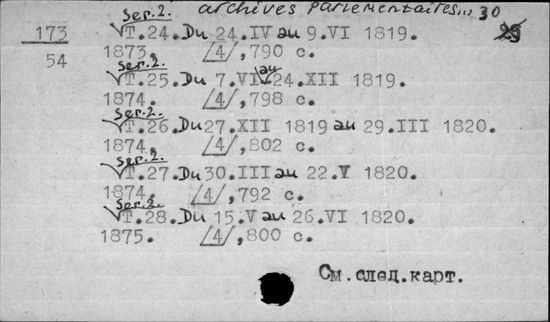 Ser.2. archives parlementaires... 30
173 √T.24.Du 24.IV au 9.VI 1819.
54 1873. /4/,790 с.
Ser.2.
√T.25.Du 7.VI au 24.XII 1819.
1874. /4/,798 с.
Ser.2.
√T.26.Du 27.XII 1819 au 29.III 1820.
1874. /4/,802 с.
Ser.2.
√T.27.Du 30.III au 22.V 1820.
1874. /4/,792 с.
Ser.2.
√T.28.Du 15.V au 26.VI 1820.
1875. /4/,800 с.
См.след.карт.